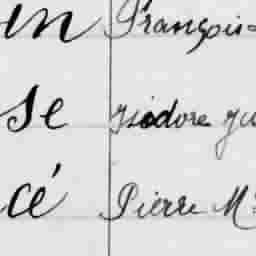 in François-
se Isidore Ju
cé Pierre M